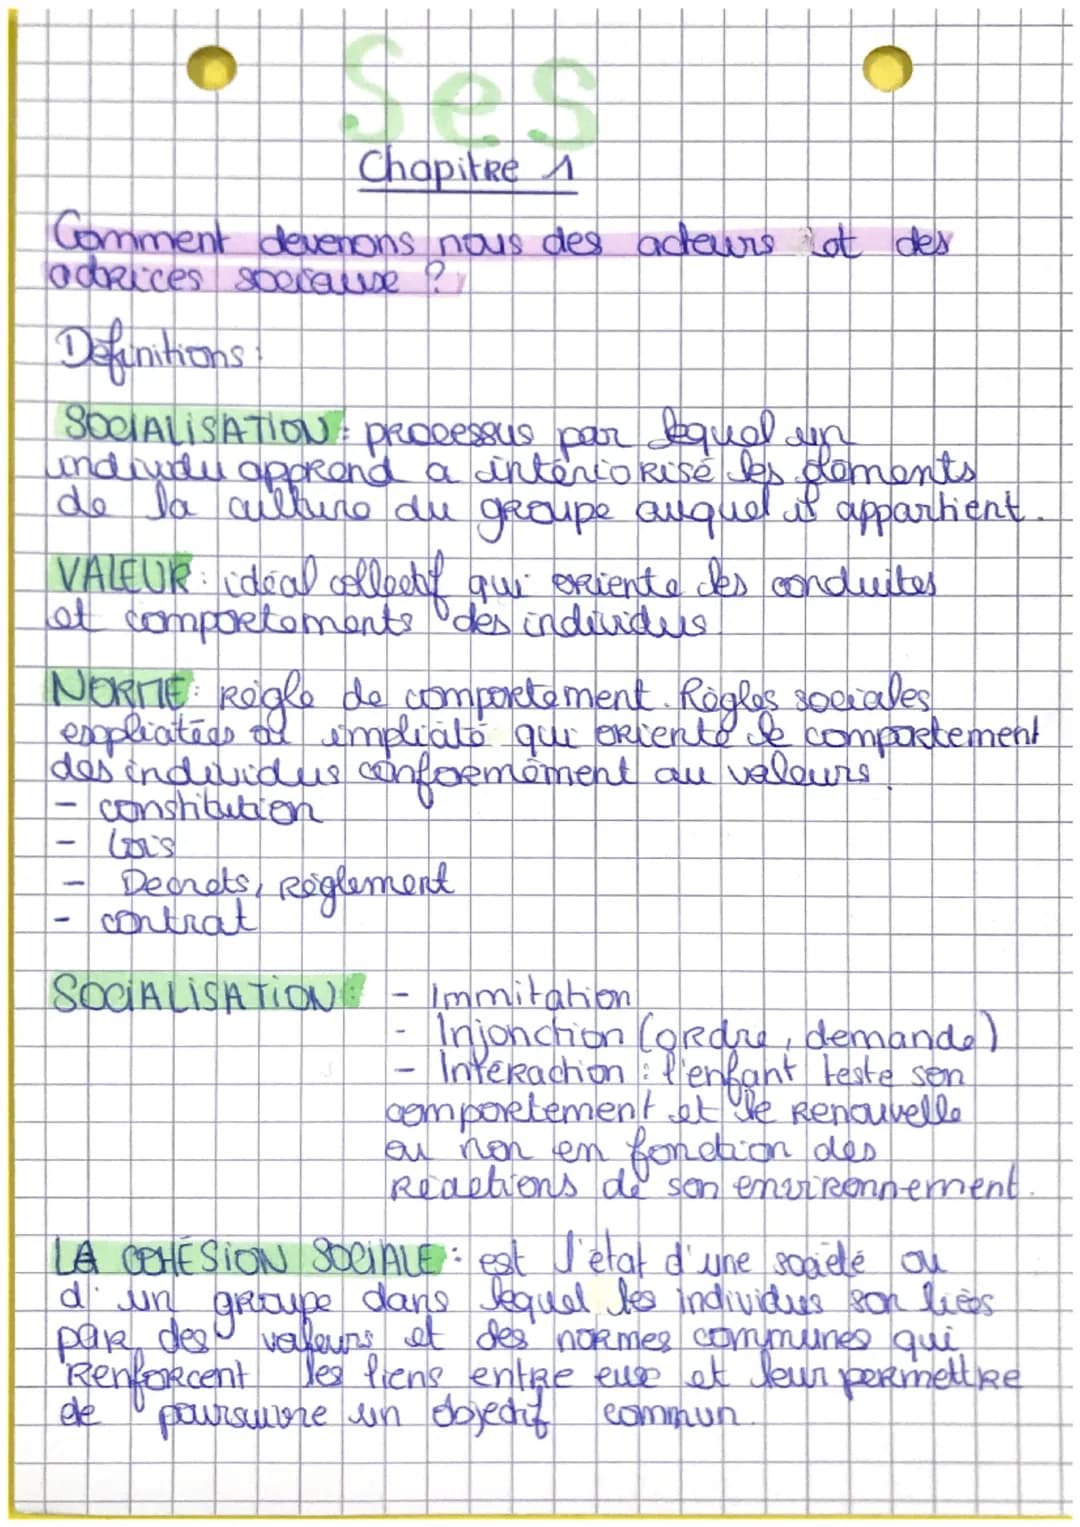 Ses
Chapitre 1
Comment devenons nous des acteurs et des
actrices sociaux ?
Définitions :
SOCIALISATION : processus par lequel un
individu apprend a intériorisé les éléments
de la culture du groupe auquel il appartient.
VALEUR : idéal collectif qui oriente des conduites
et comportements des individus
NORME : Règle de comportement. Règles sociales
explicatées ou implicité qui oriente le comportement
des individus conformément au valeurs.
- constitution
- Lois
- Decrets, Règlement
- contrat
SOCIALISATION : - Immitation
- Injonction (ordre, demande)
- Interaction : l'enfant teste son
comportement et le renouvelle
ou non en fonction des
Réactions de son environnement.
LA COHÉSION SOCIALE : est l'état d'une société ou
d'un groupe dans lequel les individus son liées
par des valeurs et des normes communes qui
Renforcent les liens entre eux et leur permettre
de poursuivre un objectif commun.